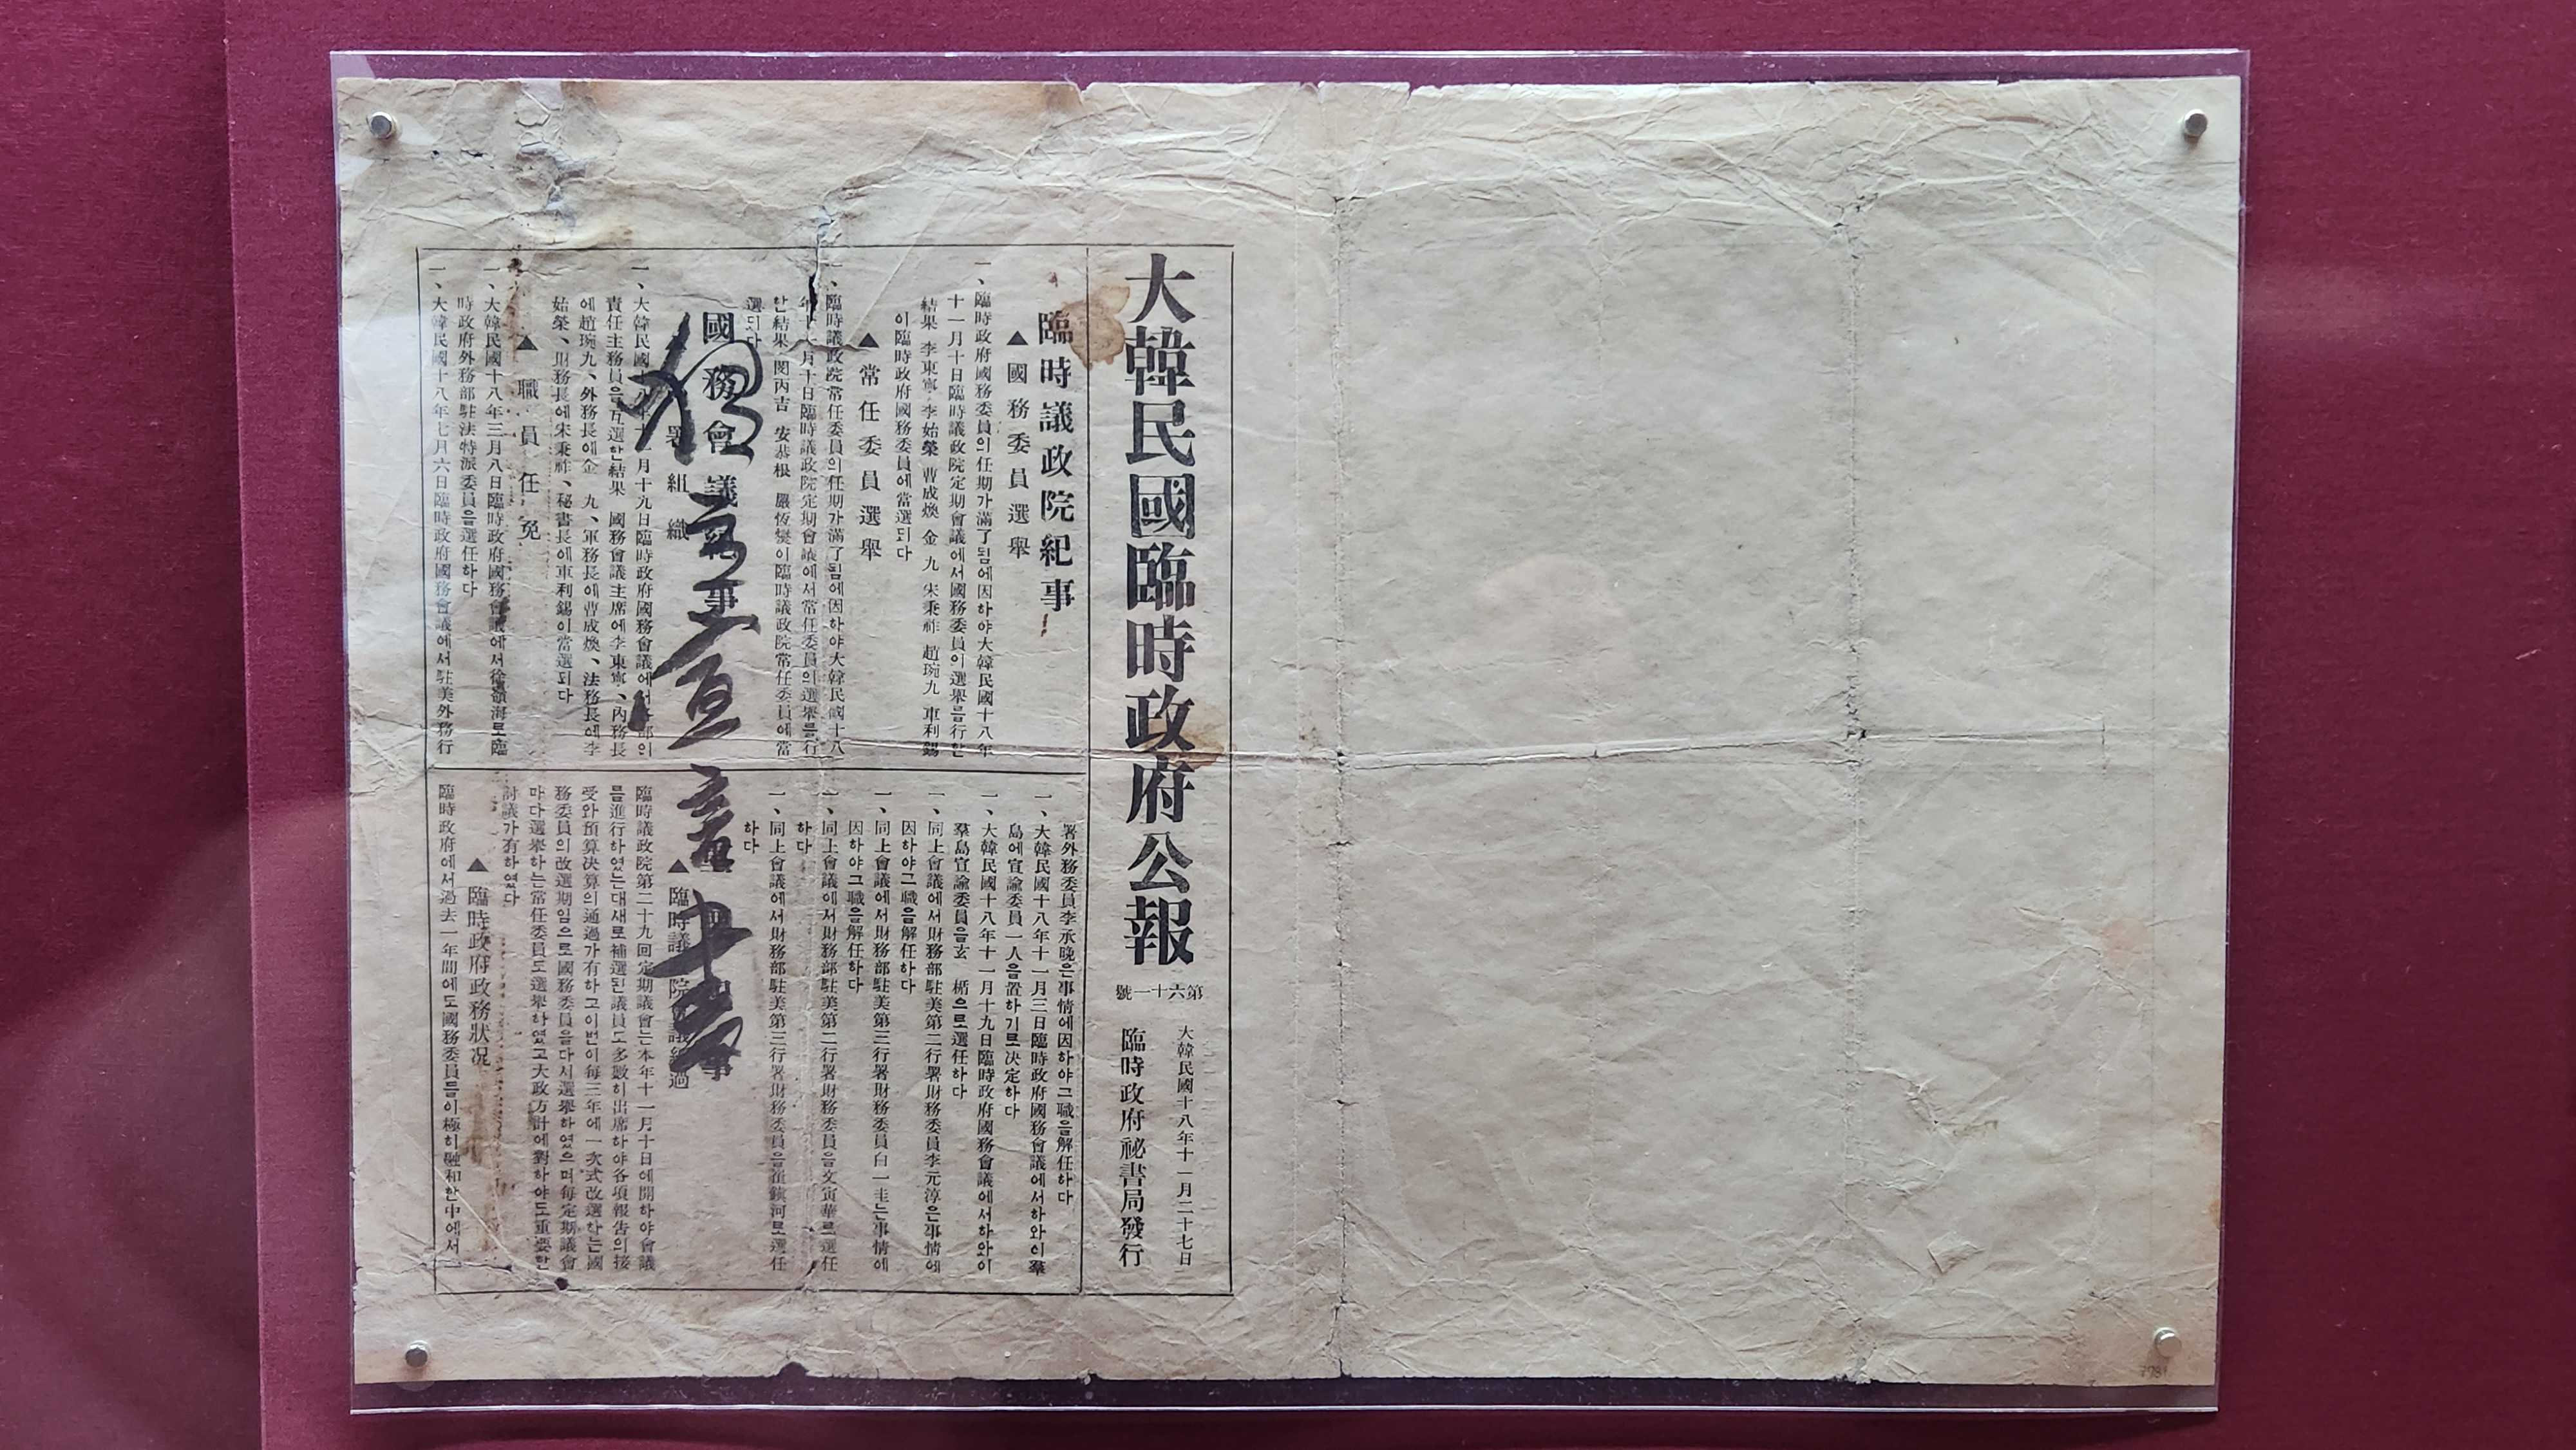 大韓民國臨時政府公報
第六十一號
大韓民國十八年十一月二十七日
臨時政府祕書局發行
臨時議政院紀事
▲國務委員選舉
一、臨時政府國務委員의任期가滿了됨에因하야大韓民國十八年
十一月十日臨時議政院定期會議에서國務委員의選舉를行한
結果 李東寧 李始榮 曹成煥 金 九 宋秉祚 趙琬九 車利錫
이臨時政府國務委員에當選되다
▲常任委員選舉
一、臨時議政院常任委員의任期가滿了됨에因하야大韓民國十八
年十一月十日臨時議政院定期會議에서常任委員의選舉를行
한結果 閔丙吉 安恭根 嚴恆燮이臨時議政院常任委員에當
選되다
國務會議紀事
組織
一、大韓民國十八年十一月十九日臨時政府國務會議에서各部의
責任主務員을互選한結果 國務會議主席에李東寧、內務長
에趙琬九、外務長에金 九、軍務長에曹成煥、法務長에李
始榮、財務長에宋秉祚、秘書長에車利錫이當選되다
▲職員任免
一、大韓民國十八年三月八日臨時政府國務會議에서徐嶺海로臨
時政府外務部駐法特派委員을選任하다
一、大韓民國十八年七月六日臨時政府國務會議에서駐美外務行
署外務委員李承晚은事情에因하야그職을解任하다
一、大韓民國十八年十一月三日臨時政府國務會議에서하와이羣
島에宣諭委員一人을置하기로決定하다
一、大韓民國十八年十一月十九日臨時政府國務會議에서하와이
羣島宣諭委員을玄 楯으로選任하다
一、同上會議에서財務部駐美第二行署財務委員李元淳은事情에
因하야그職을解任하다
一、同上會議에서財務部駐美第三行署財務委員白一圭는事情에
因하야그職을解任하다
一、同上會議에서財務部駐美第二行署財務委員을文寅華로選任
하다
一、同上會議에서財務部駐美第三行署財務委員을崔鎮河로選任
하다
▲臨時議政院會議經過
臨時議政院第二十九回定期議會는本年十一月十日에開하야會議
를進行하였는대새로補選된議員도多數히出席하야各項報告의接
受와預算決算의通過가有하고이번이每三年에一次式改選하는國
務委員의改選期임으로國務委員을다시選舉하였으며每定期議會
마다選舉하는常任委員도選舉하였고大政方針에對하야도重要한
討議가有하였다
▲臨時政府政務狀況
臨時政府에서過去一年間에도國務委員들이極히融和한中에서